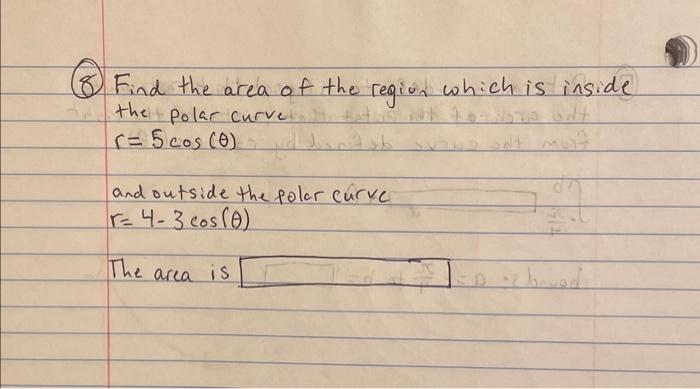 8 Find the area of the region which is inside
the polar curve
r = 5 cos (θ)
and outside the polar curve
r = 4 - 3 cos(θ)
The area is